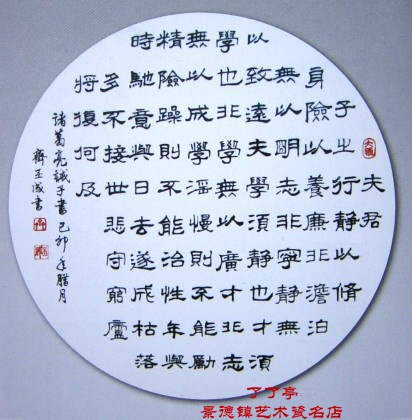 夫君
子之行静以修
身險以養廉非澹泊
無以明志非寧静無
以致遠夫學須静也才須
學也非學無以廣才非志
無以成學滛慢則不能勵
精險躁則不能治性年與
時馳意與日去遂成枯落
多不接世悲守窮廬
將復何及
诸葛亮誡子書己卯年腊月
齊丕成書
了了亭
景德镇艺术瓷名店